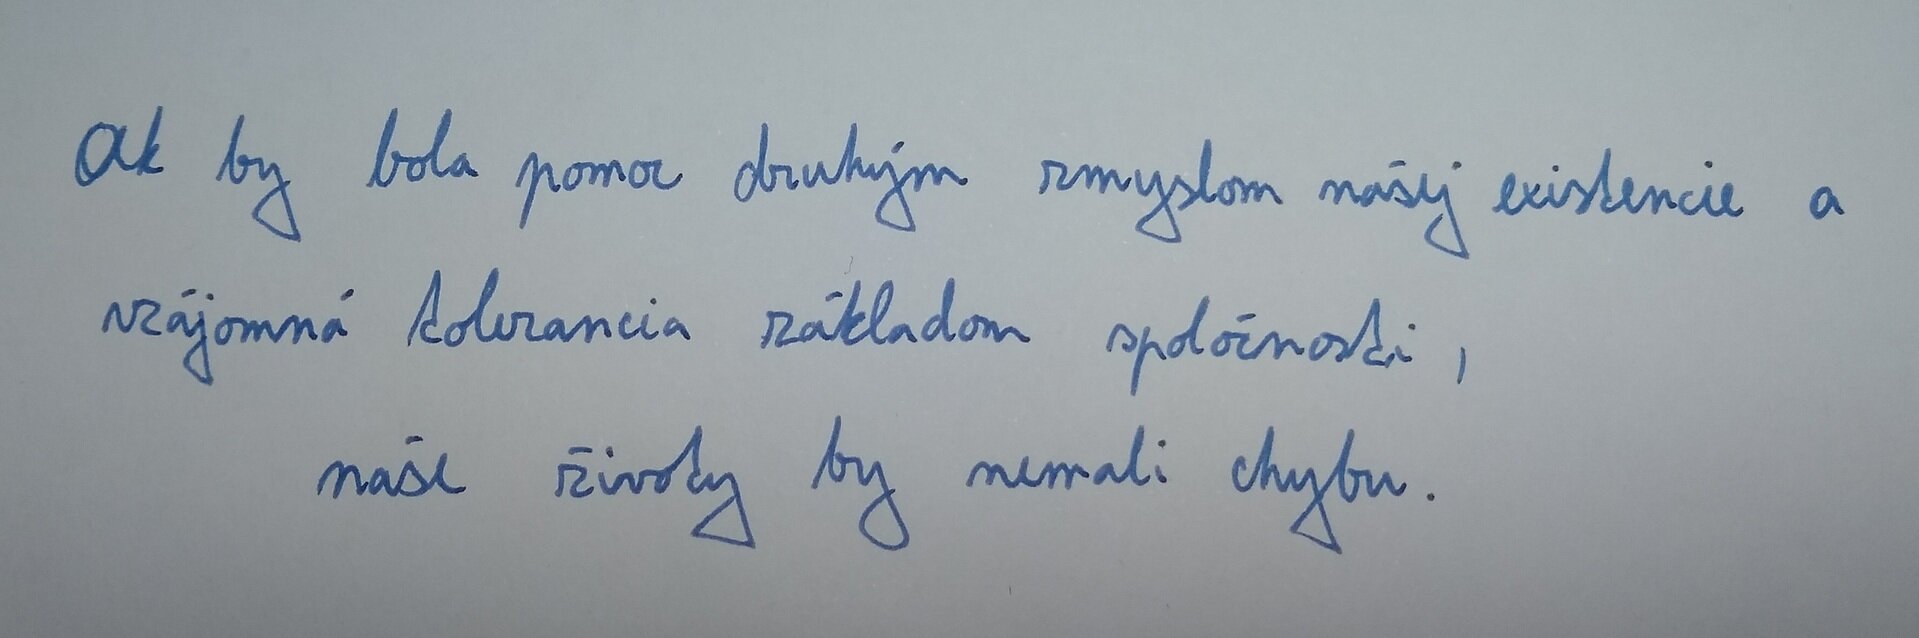 Ak by bola pomoc druhým zmyslom našej existencie a
vzájomná tolerancia základom spoločnosti,
naše životy by nemali chybu.